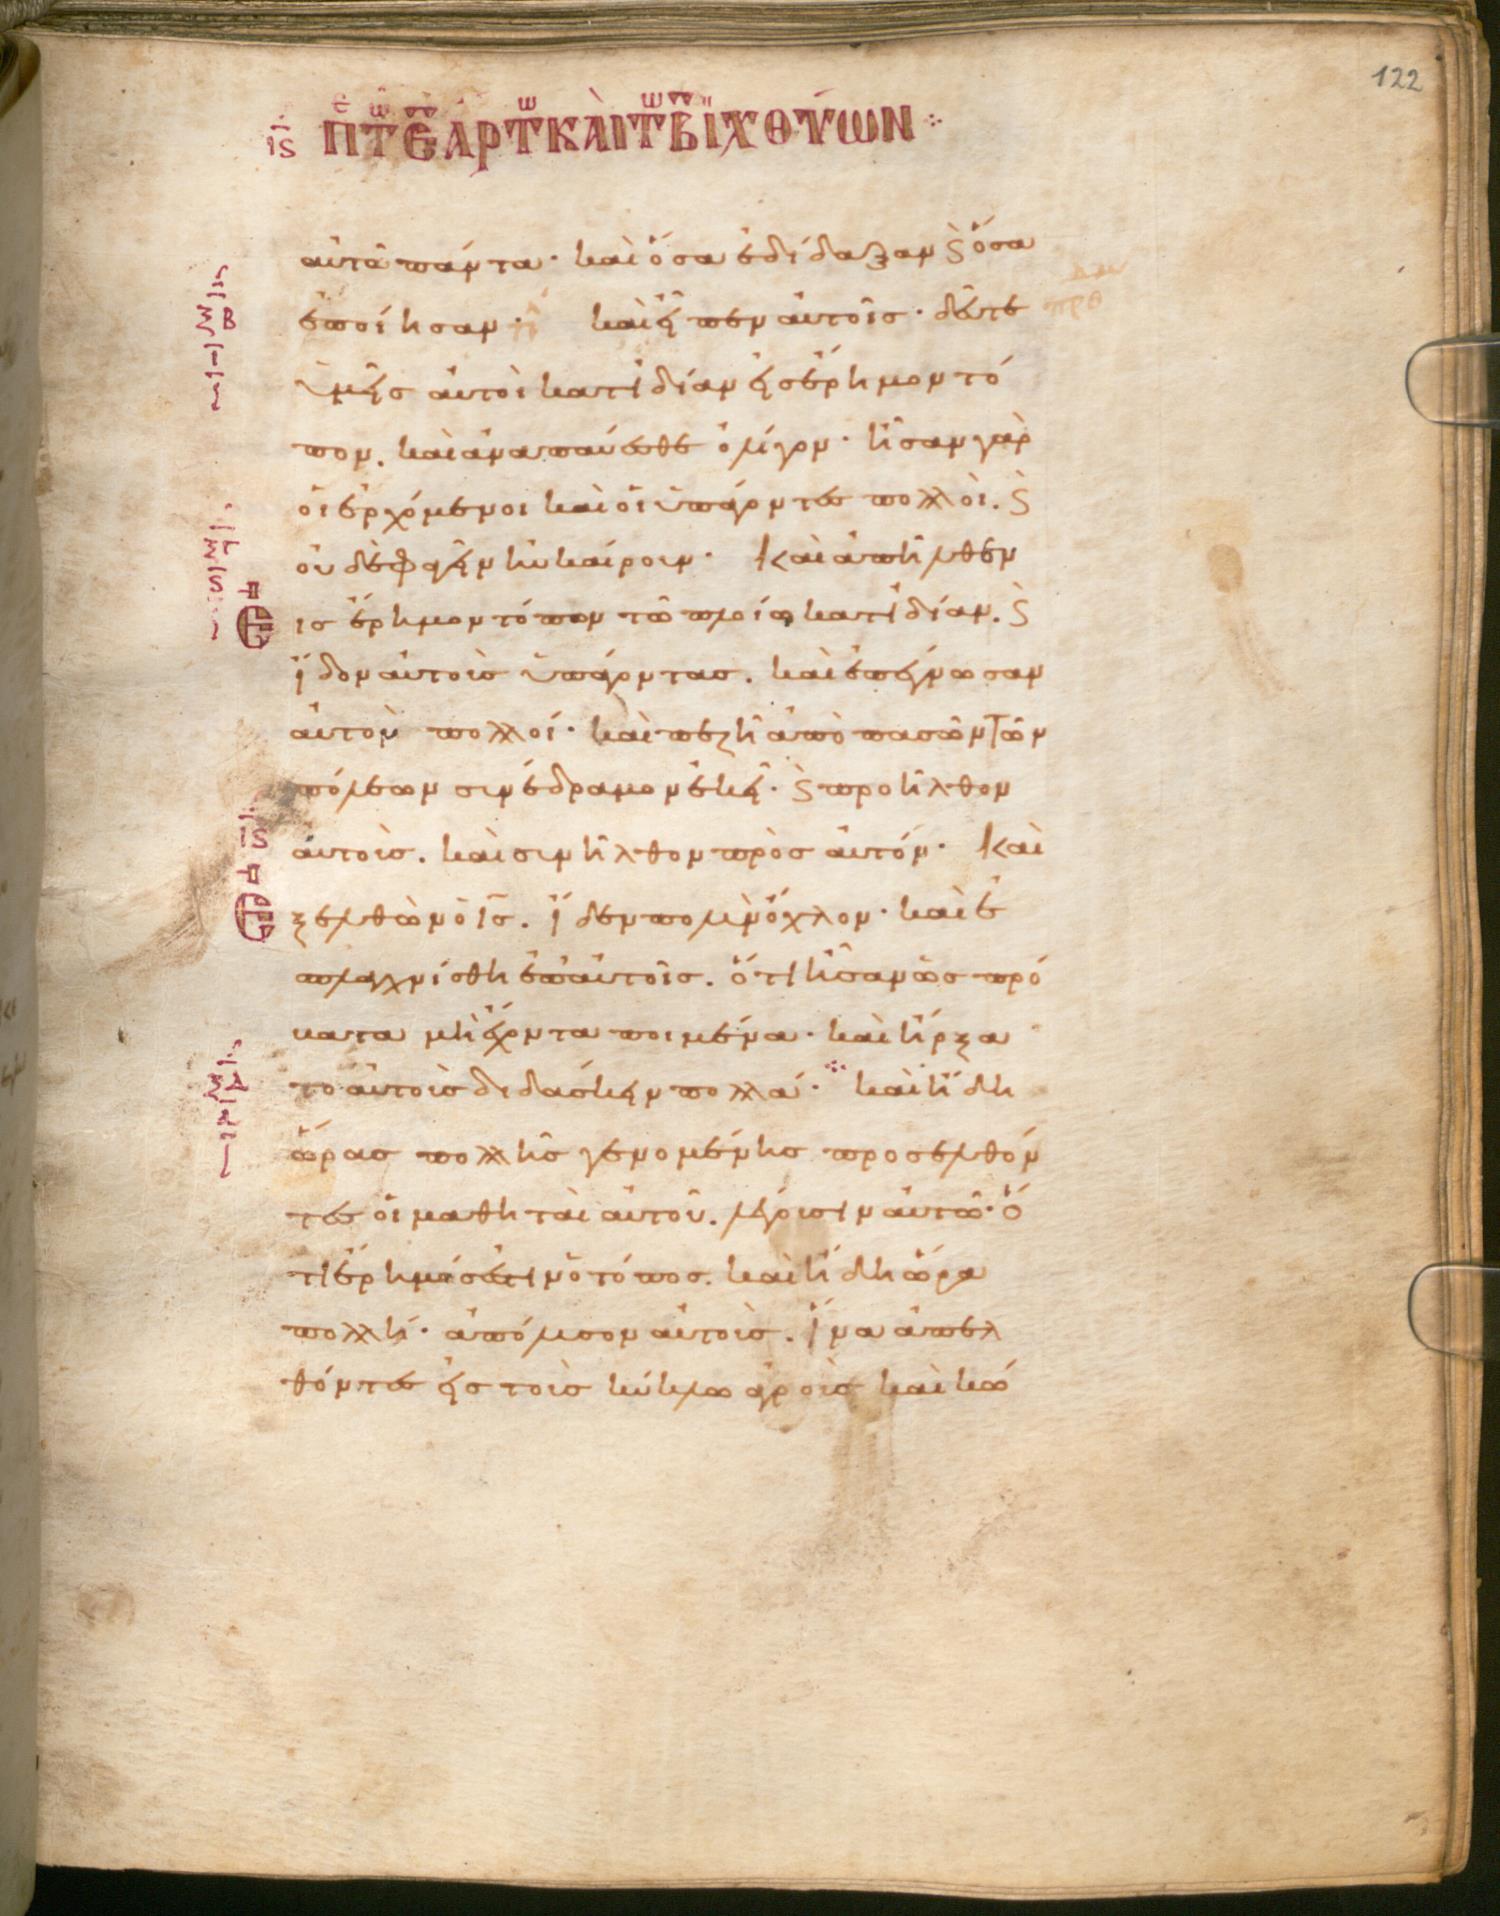 122
ιϛ Π͞ΤΕ ΑΡΤ ΚΑΙ Τ Β ΪΧΘΥΩΝ
αὐτῶ πάντα· καὶ ὅσα ἐδίδαξαν ϛ ὅσα
ἐποίησαν· καὶ εἶπεν αὐτοῖς· δεῦτε
ὑμεῖς αὐτοὶ κατ ἰδίαν εἰς ἔρημον τό
πον. καὶ ἀναπαύεσθε ὀλίγον· ἦσαν γὰρ
οἱ ἐρχόμενοι καὶ οἱ ὑπάγοντες πολλοὶ. ϛ
οὐδὲ φαγεῖν ηὐκαίρουν· Καὶ ἀπῆλθεν
εἰς ἔρημον τόπον τῶ πλοίω κατ ἰδίαν. ϛ
ἴδον αὐτοὺς ὑπάγοντας. καὶ ἐπέγνωσαν
αὐτὸν πολλοί· καὶ πεζῆ ἀπὸ πασῶν τῶν
πόλεων συνέδραμον ἐκεῖ· ϛ προῆλθον
αὐτοὺς. καὶ συνῆλθον πρὸς αὐτόν· Καὶ
ἐξελθὼν ὁ ι͞ς. ἴδεν πολὺν ὄχλον· καὶ ἐ
σπλαγχνίσθη ἐπ αὐτοῖς. ὅτι ἦσαν ὡς πρό
βατα μὴ ἔχοντα ποιμένα· καὶ ἤρξα
το αὐτοὺς διδάσκειν πολλά· καὶ ἤδη
ὥρας πολλῆς γενομένης προσελθόν
τες οἱ μαθηταὶ αὐτοῦ. λέγουσιν αὐτῶ· ὅ
τι ἔρημός ἐστιν ὁ τόπος. καὶ ἤδη ὥρα
πολλή· ἀπόλυσον αὐτοὺς. ἵνα ἀπελ
θόντες εἰς τοὺς κύκλω ἀγροὺς καὶ κώ